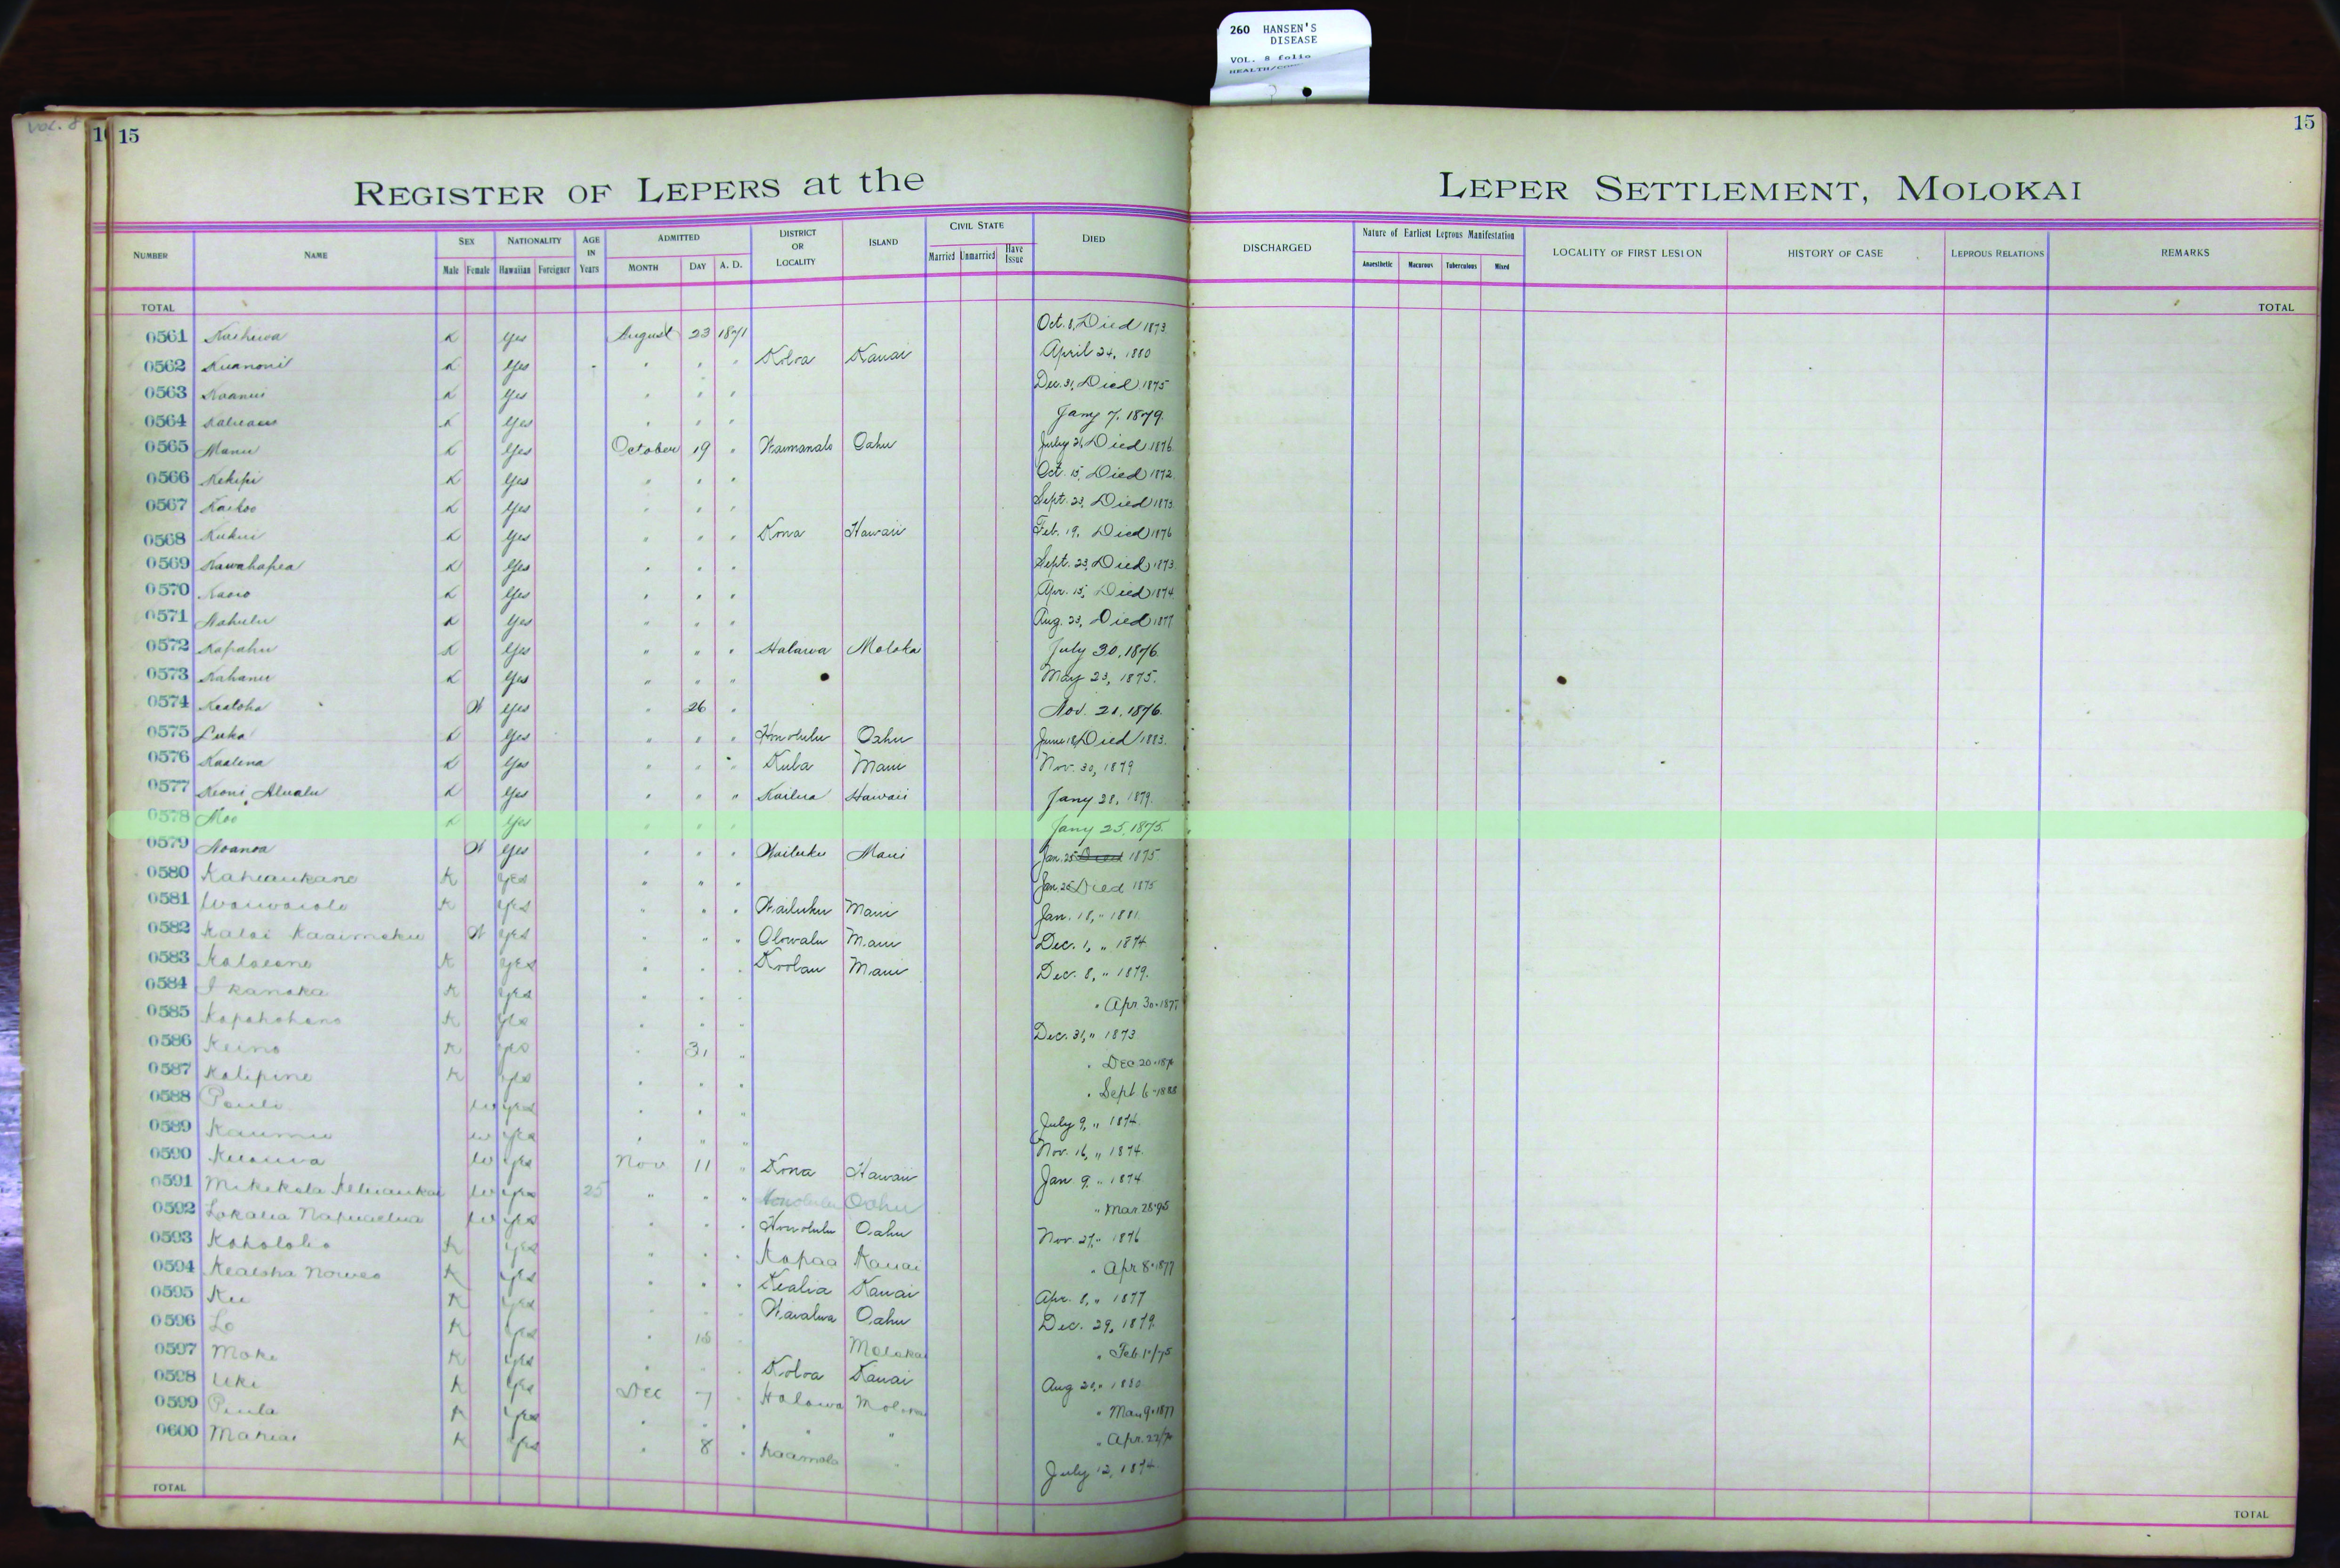 260 HANSEN'S
DISEASE
VOL. 8 folio
VOL. 8
15
15
REGISTER OF LEPERS at the LEPER SETTLEMENT, MOLOKAI
NUMBER NAME SEX NATIONALITY AGE IN Years ADMITTED DISTRICT OR LOCALITY ISLAND CIVIL STATE DIED DISCHARGED Nature of Earliest Leprous Manifestation LOCALITY OF FIRST LESION HISTORY OF CASE LEPROUS RELATIONS REMARKS
Male Female Hawaiian Foreigner MONTH DAY A. D. Married Unmarried Have Issue Anaesthetic Macurous Tuberculous Mixed
TOTAL TOTAL
0561 K Yes August 23 1871 Oct. 8, Died 1873
0562 K Yes " " " Koloa Kauai April 24, 1880
0563 K Yes " " " Dec. 31, Died 1875
0564 K Yes " " " Jany 7, 1879.
0565 Manu K Yes October 19 " Waimanalo Oahu July Died 1876
0566 Kekipi K Yes " " " Oct. 15, Died 1872
0567 Kaikoo K Yes " " " Sept. 23, Died 1873
0568 Kukui K Yes " " " Kona Hawaii Feb. 19, Died 1876
0569 Kawahapea K Yes " " " Sept. 23, Died 1873
0570 K Yes " " " Apr. 15, Died 1874
0571 Nahulu K Yes " " " Aug. 23, Died 1877
0572 Kapahu K Yes " " " Halawa Moloka July 30, 1876
0573 Kahanu K Yes " " " May 23, 1875.
0574 Kealoha W Yes " 26 " Nov. 21, 1876.
0575 Luka K Yes " " " Honolulu Oahu June 18, Died 1883.
0576 Kaalena K Yes " " " Kula Maui Nov. 30, 1879
0577 Keoni Alualu K Yes " " " Kailua Hawaii Jany 28, 1879.
0578 Moo K Yes " " " Jany 25, 1875.
0579 Noanoa W Yes " " " Wailuku Maui Jan. 25 Died 1875
0580 Kaheaukane K Yes " " " Jan. 25 Died 1875
0581 Waiwaiole K Yes " " " Wailuku Maui Jan. 18, " 1881
0582 Kalai Kaaimoku W Yes " " " Olowalu Maui Dec. 1, " 1874
0583 K Yes " " " Koolau Maui Dec. 8, " 1879.
0584 I kanaka K Yes " " " " Apr 30-187
0585 Kapahohano K Yes " " " Dec. 31, " 1873
0586 Keino K Yes " 31 " " Dec 20-187
0587 Kalipine K Yes " " " " Sept 6-1888
0588 Pauli W Yes " " " July 9, " 1874.
0589 Kaumu W Yes " " " Nov. 16, " 1874.
0590 W Yes Nov 11 " Kona Hawaii Jan. 9 " 1874
0591 Mikikola W Yes 25 " " " Honolulu Oahu " Mar. 28-95
0592 Lokalia W Yes " " " Honolulu Oahu Nov. 27, " 1876
0593 Koholoho K Yes " " " Kapaa Kauai " Apr 8-1877
0594 Kealoha K Yes " " " Kealia Kauai Apr. 8, " 1877
0595 Ku K Yes " " " Waialua Oahu Dec. 29, 1879
0596 Lo K Yes " 18 " Molokai " Feb.
0597 Moke K Yes " " " Koloa Kauai Aug 1880
0598 Uki K Yes Dec 7 " Halawa " Mar. 9-1877
0599 Piula K Yes " " " " " " Apr. 22
0600 Mahiai K Yes " 8 " Kaamola " July 12, 1874
TOTAL TOTAL